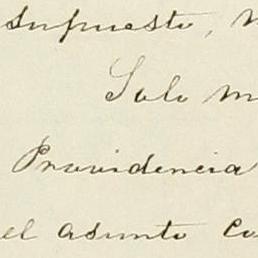 supuesto,
Solo m
Providencia
el asunto co